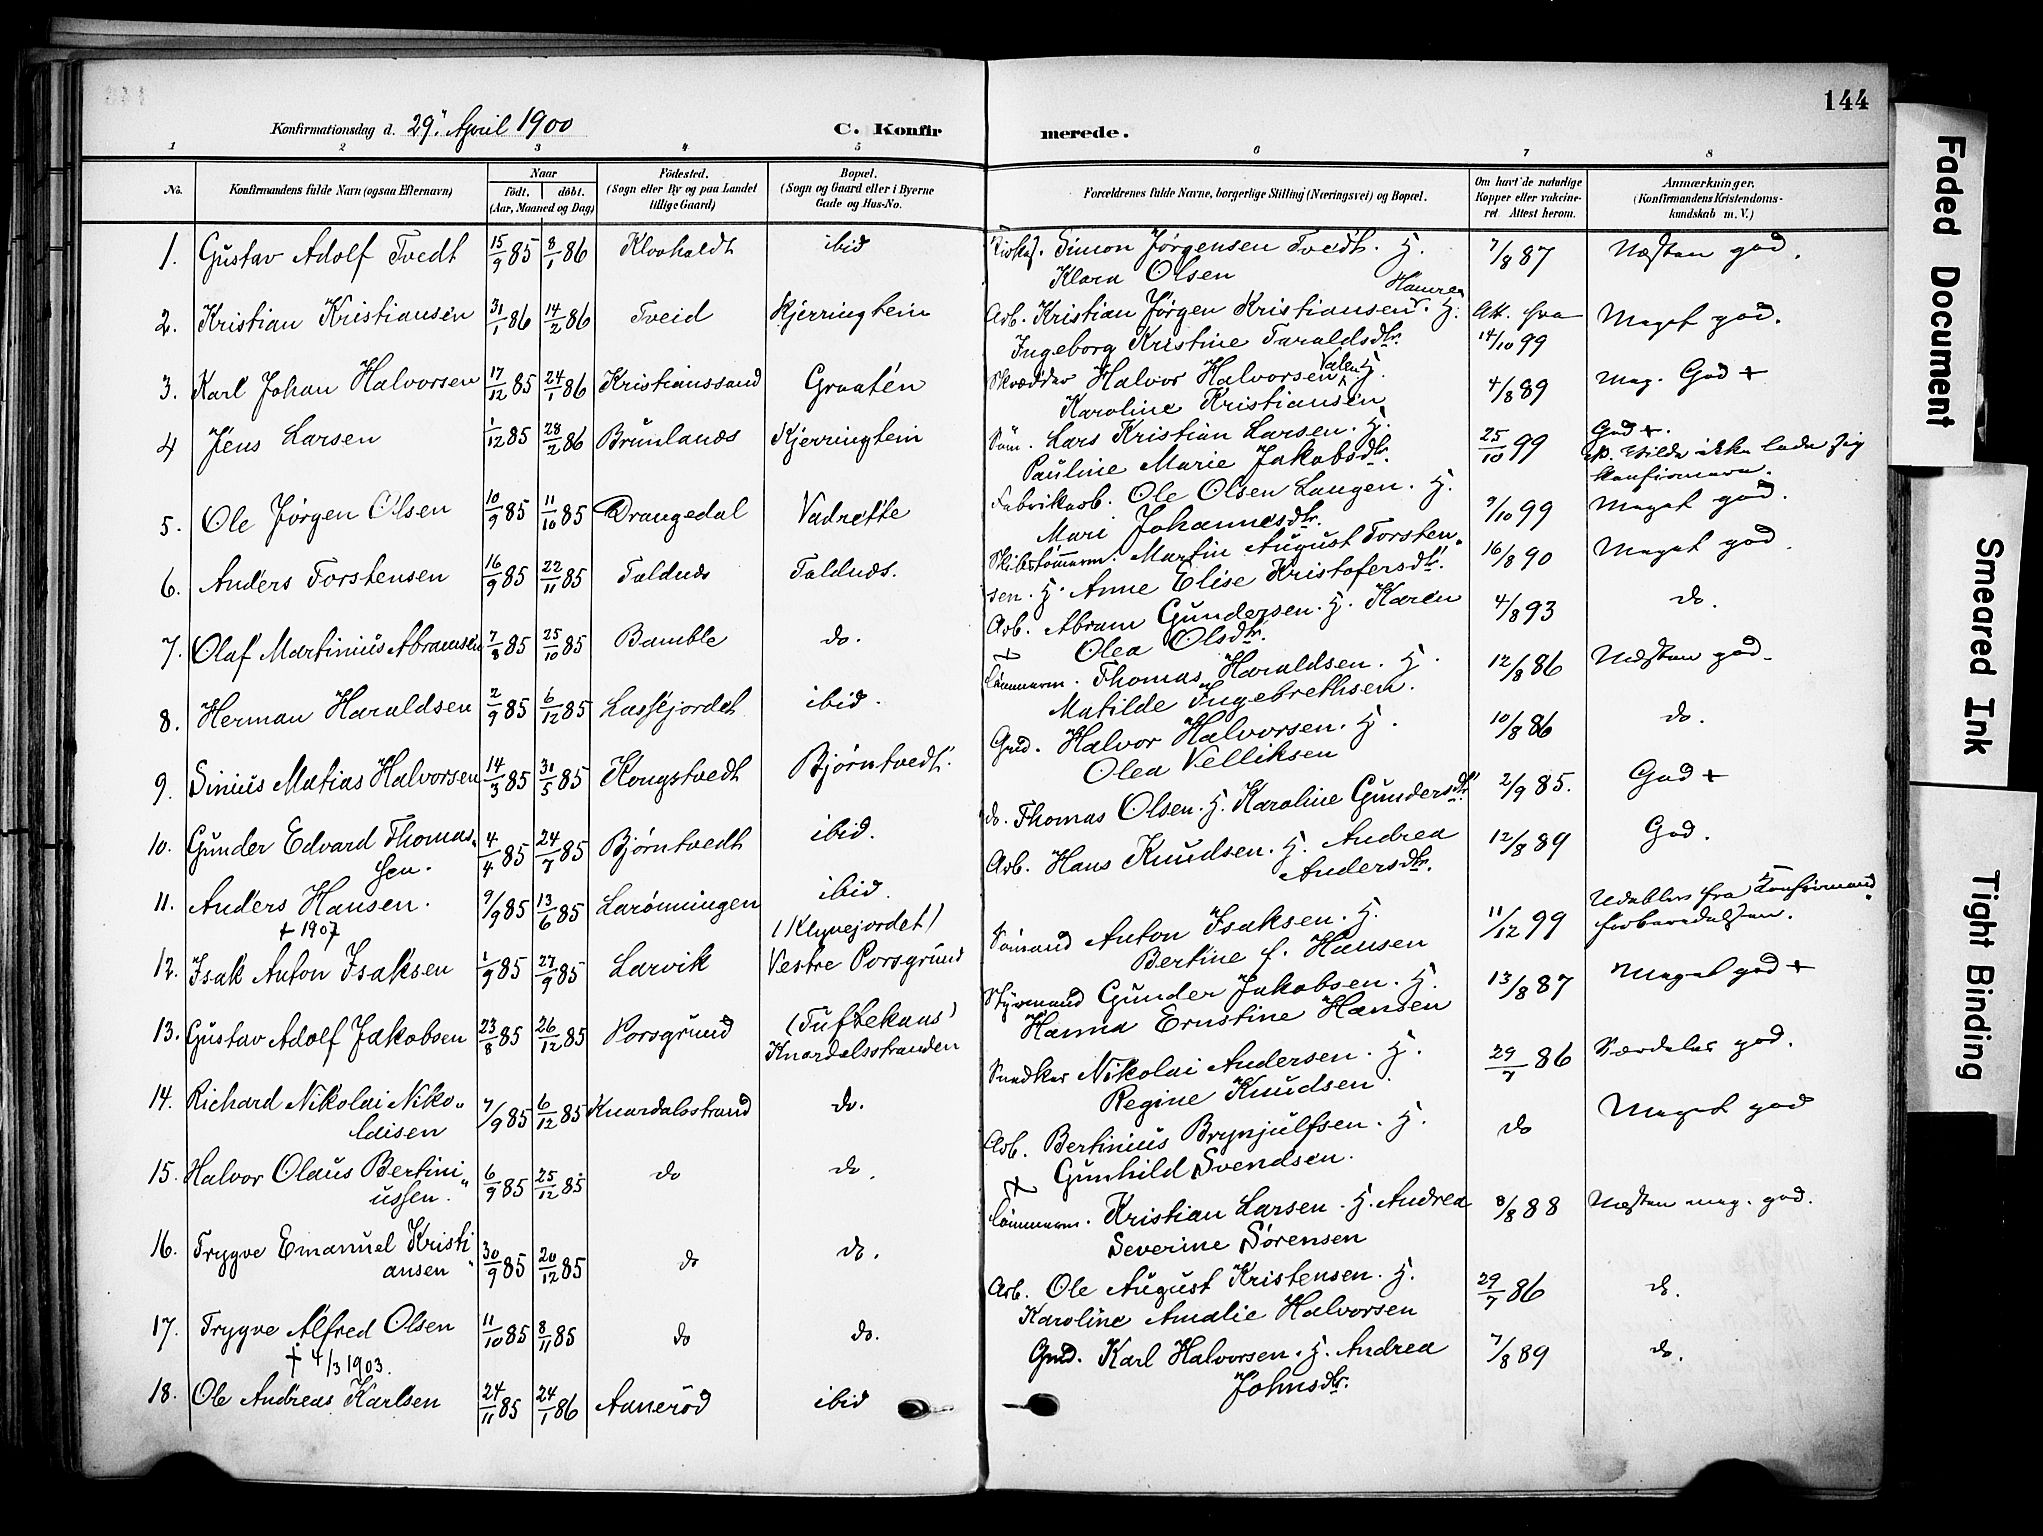 144
Konfirmationsdag d. 29. April 1900
C. Konfirmerede.
1 2 3 4 5 6 7 8
No.
Konfirmandens fulde Navn (ogsaa Efternavn)
Naar
født. døbt.
(Aar, Maaned og Dag)
Fødested.
(Sogn eller By og paa Landet
tillige Gaard)
Bopæl.
(Sogn og Gaard eller i Byerne
Gade og Hus-No.
Forældrenes fulde Navne, borgerlige Stilling (Næringsvei) og Bopæl.
Om havt de naturlige
Kopper eller vakcine-
ret. Attest herom.
Anmærkninger.
(Konfirmandens Kristendoms-
kundskab m. V.)
1. Gustav Adolf Tvedt 15/9 85 8/1 86 Klovholdt ibid Simon Jørgensen Tvedt. H. 7/8 87 Næsten god.
Klara Olsen
2. Kristian Kristiansen 31/1 86 14/2 86 Tveid Kjerringtein Arb. Kristian Jørgen Kristiansen Hauren. H. Att. fra 14/10 99 Meget god.
Ingeborg Kristine Taraldsdtr.
3. Karl Johan Halvorsen 17/12 85 24/1 86 Kristianssand Graatén Skrædder Halvor Halvorsen Valen H. 4/8 89 Meg. God +
Karoline Kristiansen
4 Jens Larsen 1/12 85 28/2 86 Brunlanæs Kjerringtein Søm. Lars Kristian Larsen. H. 25/10 99 God +.
Pauline Marie Jakobsdtr.
vilde ikke lade sig
konfirmere.
5. Ole Jørgen Olsen 10/9 85 11/10 85 Drangedal Vadrette Fabrikarb. Ole Olsen Laugen. H. 9/10 99 Meget god.
Mari Johannesdtr.
6. Anders Torstensen 16/9 85 22/11 85 Toldnæs Toldnæs. Skibstømmerm. Martin August Torsten- 16/8 90 Meget god.
sen. H. Anne Elise Kristofersdtr.
7. Olaf Martinius Abramsen 7/8 85 25/10 85 Bamble do. Arb. Abram Gundersen. H. Karen 4/8 93 do.
Olea Olsdtr.
8. Herman Haraldsen 2/9 85 6/12 85 Lassejordet ibid. Tømmerm. Thomas Haraldsen. H. 12/8 86 Næsten god.
Matilde Ingebrethsen.
9. Sinius Matias Halvorsen 14/3 85 31/5 85 Kongstvedt Bjørntvedt. Grd. Halvor Halvorsen. H. 10/8 86 do.
Olea Velliksen
10. Gunder Edvard Thomas- 4/4 85 24/7 85 Bjørntvedt ibid. do. Thomas Olsen. H. Karoline Gundersdtr. 2/9 85. God +
sen.
11. Anders Hansen. 9/9 85 13/6 85 Larønningen ibid. Arb. Hans Knudsen. H. Andrea 12/8 89 God.
Andersdtr.
+ 1907
(Klyvejordet)
12. Isak Anton Isaksen 1/9 85 27/9 85 Larvik Vestre Porsgrund Sømand Anton Isaksen. H. 11/12 99 Udeblev fra Konfirmand
Bertine f. Hansen
forberedelsen.
13. Gustav Adolf Jakobsen 23/8 85 26/12 85 Porsgrund (Tuftekaas) Styrmand Gunder Jakobsen. H. 13/8 87 Meget god +
Knardalsstranden
Hanna Ernstine Hansen
14. Richard Nikolai Niko- 7/9 85 6/12 85 Knardalsstrand do. Snedker Nikolai Andersen. H. 29/7 86 Særdeles god.
laisen
Regine Knudsen.
15. Halvor Olaus Bertini- 6/9 85 25/12 85 do do. Arb. Bertinius Brynjulfsen. H. do Meget god
ussen.
Gunhild Svendsen.
16. Trygve Emanuel Kristi- 30/9 85 20/12 85 do do. Tømmerm. Kristian Larsen. H. Andrea 8/8 88 Næsten meg. god.
ansen
Severine Sørensen
17. Trygve Alfred Olsen 11/10 85 8/11 85 do do. Arb. Ole August Kristensen. H. 29/7 86 do.
Karoline Amalie Halvorsen
† 4/3 1903.
18. Ole Andreas Karlsen 24/11 85 24/1 86 Aanerød ibid Grd. Karl Halvorsen. H. Andrea 7/8 89 do.
Johnsdtr.
Faded Document
Smeared Ink
Tight Binding